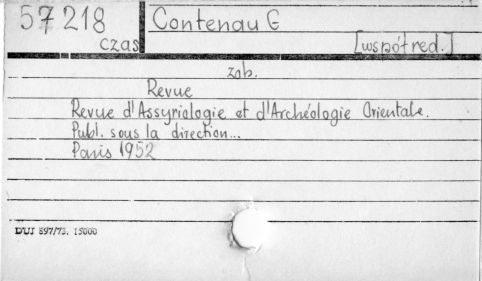 57218
czas
Contenau G
[współred.]
zob.
Revue
Revue d'Assyriologie et d'Archéologie Orientale.
Publ. sous la direction...
Paris 1952
DUJ 897/73. 15000